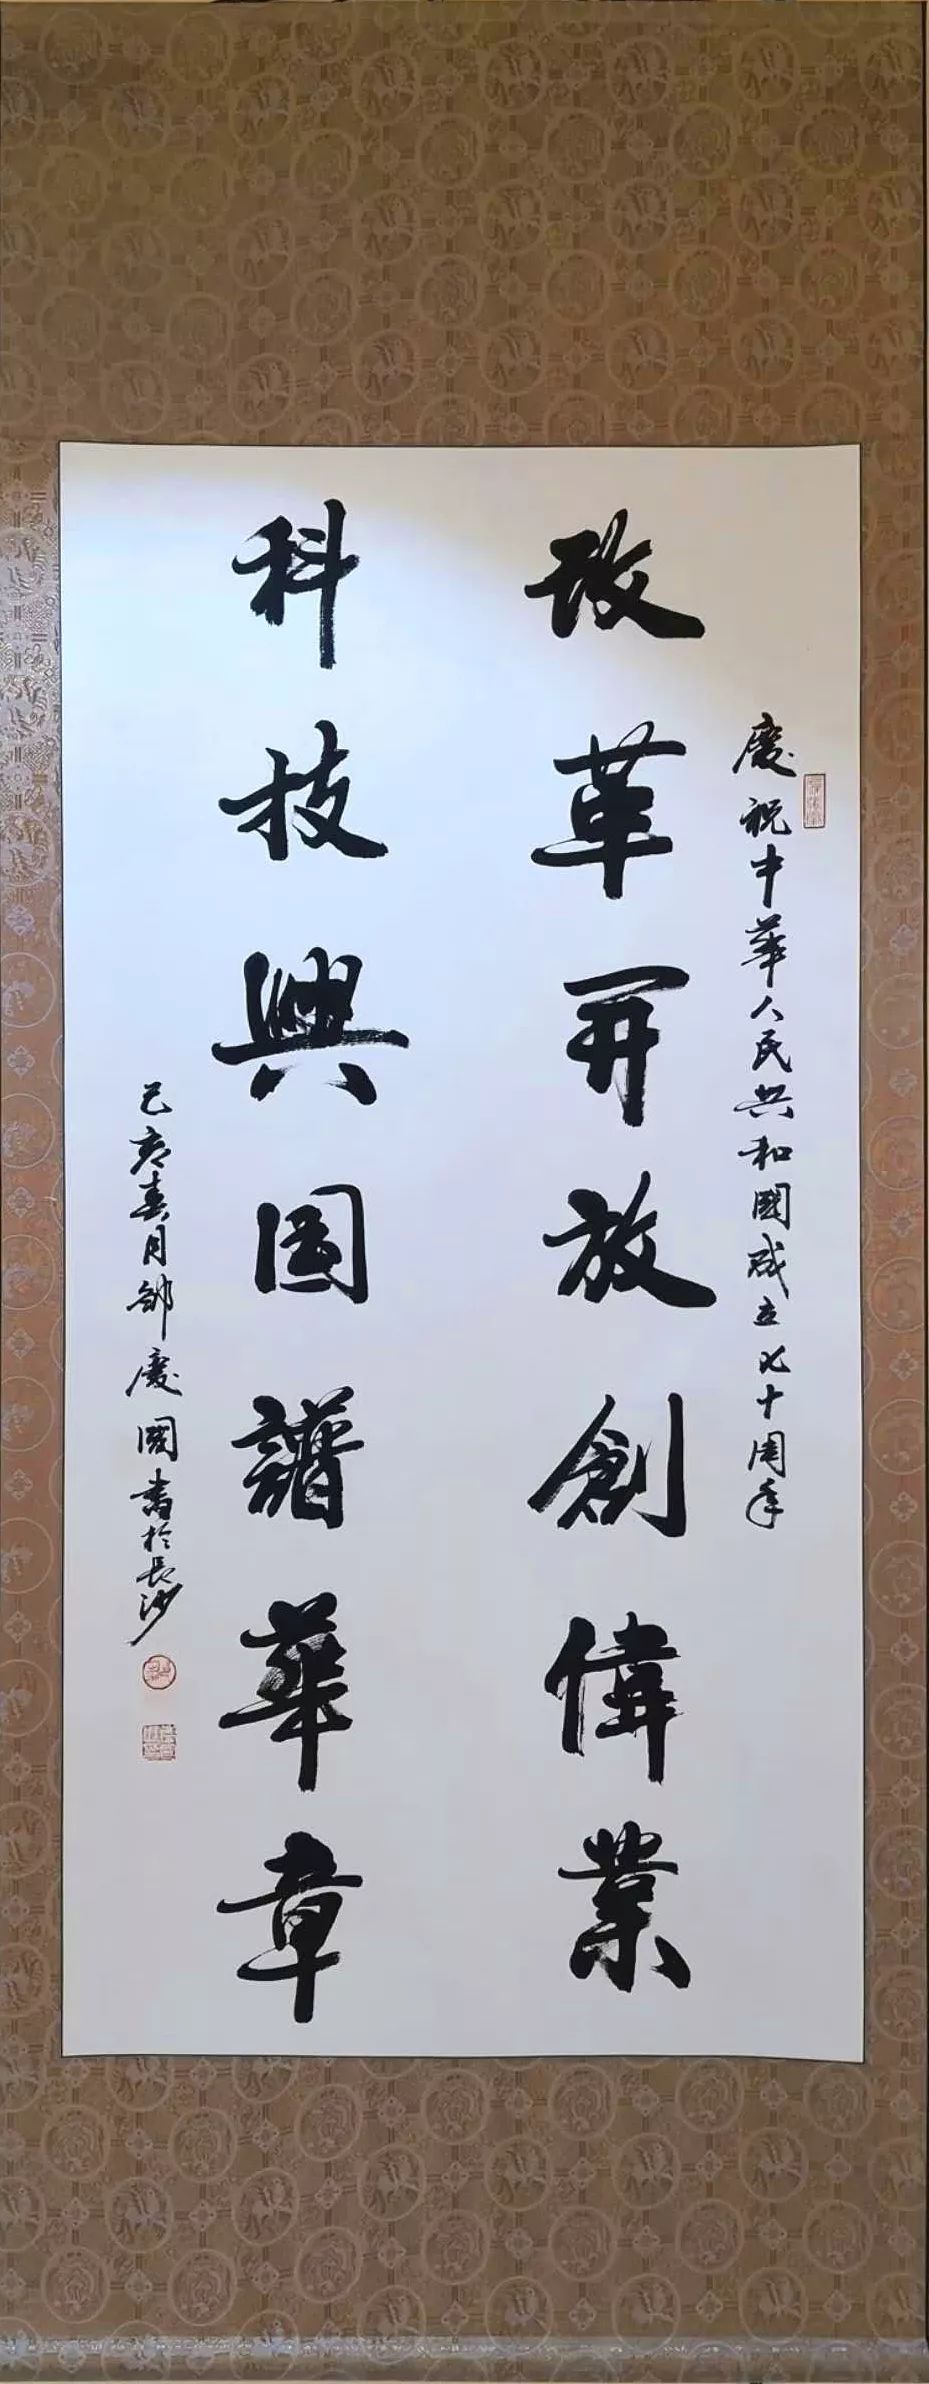 慶祝中華人民共和國成立七十周年
改革开放創偉業
科技興国譜華章
己亥春月鄒慶國書於長沙